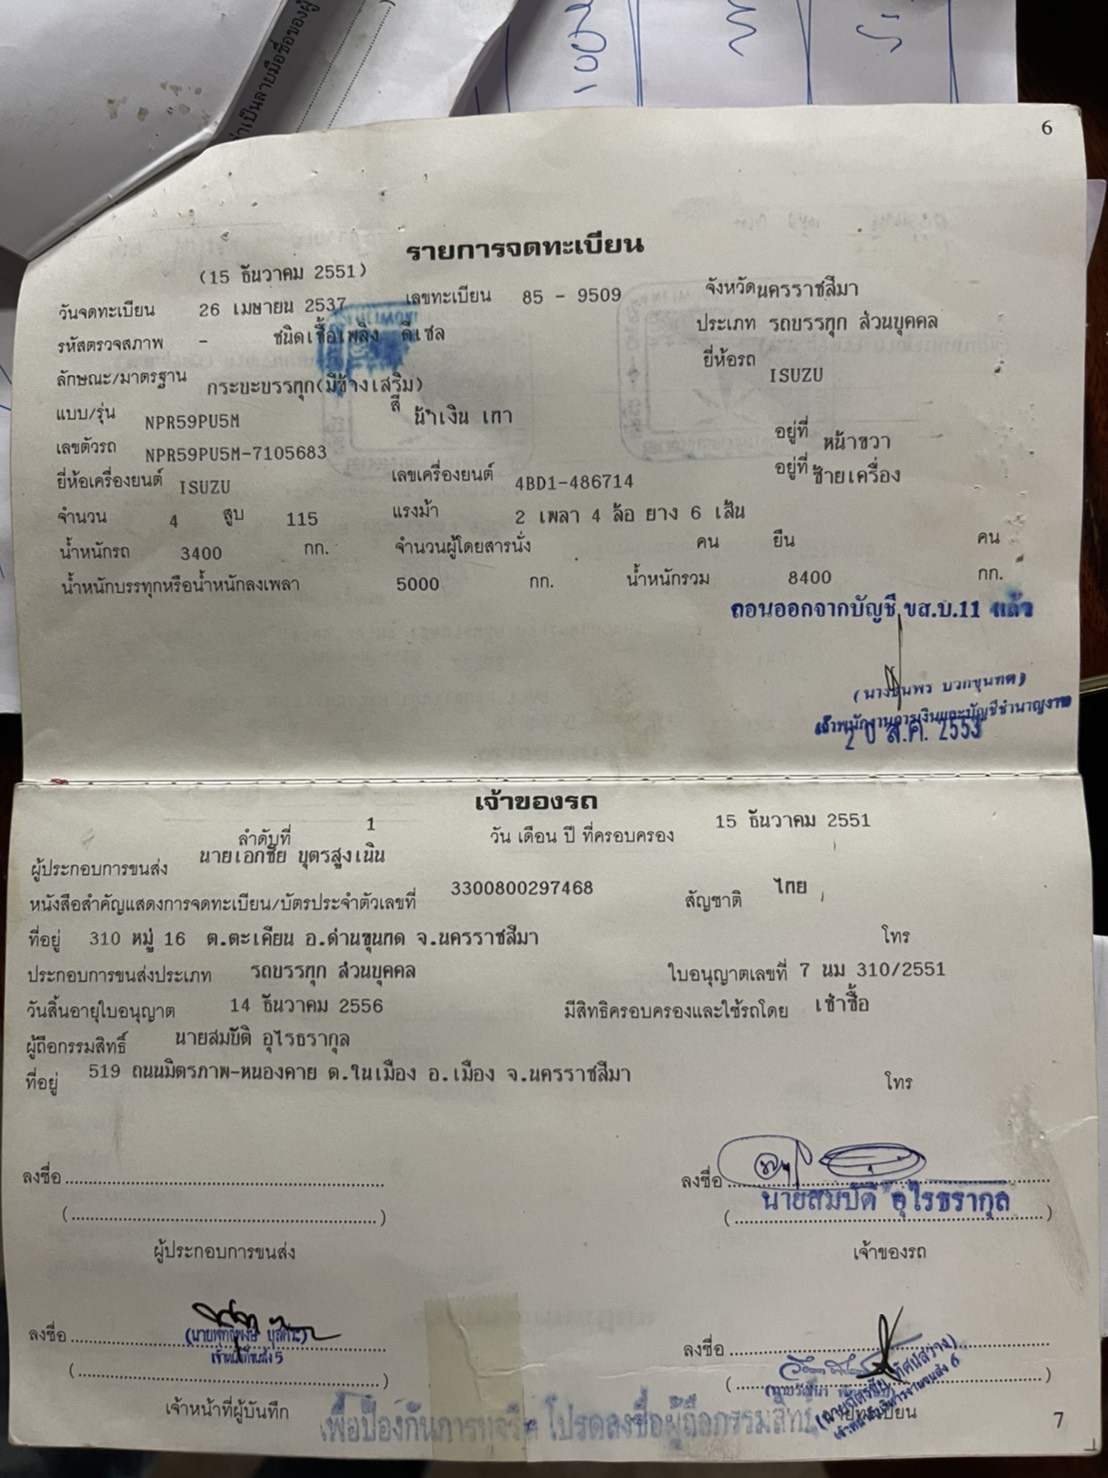 6
รายการจดทะเบียน
(15 ธันวาคม 2551)
วันจดทะเบียน 26 เมษายน 2537 เลขทะเบียน 85 - 9509 จังหวัด นครราชสีมา
รหัสตรวจสภาพ - ชนิดเชื้อเพลิง ดีเซล ประเภท รถบรรทุก ส่วนบุคคล
ลักษณะ/มาตรฐาน กระบะบรรทุก(มีข้างเสริม) ยี่ห้อรถ ISUZU
แบบ/รุ่น NPR59PU5M สี น้ำเงิน เทา
เลขตัวรถ NPR59PU5M-7105683 อยู่ที่ หน้าขวา
ยี่ห้อเครื่องยนต์ ISUZU เลขเครื่องยนต์ 4BD1-486714 อยู่ที่ ซ้ายเครื่อง
จำนวน 4 สูบ 115 แรงม้า 2 เพลา 4 ล้อ ยาง 6 เส้น
น้ำหนักรถ 3400 กก. จำนวนผู้โดยสารนั่ง คน ยืน คน
น้ำหนักบรรทุกหรือน้ำหนักลงเพลา 5000 กก. น้ำหนักรวม 8400 กก.
ถอนออกจากบัญชี ขส.บ.11 แล้ว
บวกขุนทด)
เจ้าพนักงานการเงินและบัญชีชำนาญงาน
20 ส.ค. 2553
เจ้าของรถ
ลำดับที่ 1 วัน เดือน ปี ที่ครอบครอง 15 ธันวาคม 2551
ผู้ประกอบการขนส่ง นายเอกชัย บุตรสูงเนิน
หนังสือสำคัญแสดงการจดทะเบียน/บัตรประจำตัวเลขที่ 3300800297468 สัญชาติ ไทย
ที่อยู่ 310 หมู่ 16 ต.ตะเคียน อ.ด่านขุนทด จ.นครราชสีมา โทร
ประกอบการขนส่งประเภท รถบรรทุก ส่วนบุคคล ใบอนุญาตเลขที่ 7 นม 310/2551
วันสิ้นอายุใบอนุญาต 14 ธันวาคม 2556 มีสิทธิครอบครองและใช้รถโดย เช่าซื้อ
ผู้ถือกรรมสิทธิ์ นายสมบัติ อุไรธรากุล
ที่อยู่ 519 ถนนมิตรภาพ-หนองคาย ต.ในเมือง อ.เมือง จ.นครราชสีมา โทร
ลงชื่อ ลงชื่อ
นายสมบัติ อุไรธรากุล
(....................) (....................)
ผู้ประกอบการขนส่ง เจ้าของรถ
ลงชื่อ ลงชื่อ
เจ้าหน้าที่ขนส่ง 5
(....................) (
เจ้าหน้าที่ผู้บันทึก
เพื่อป้องกันการทุจริต โปรดลงชื่อผู้ถือกรรมสิทธิ์
7